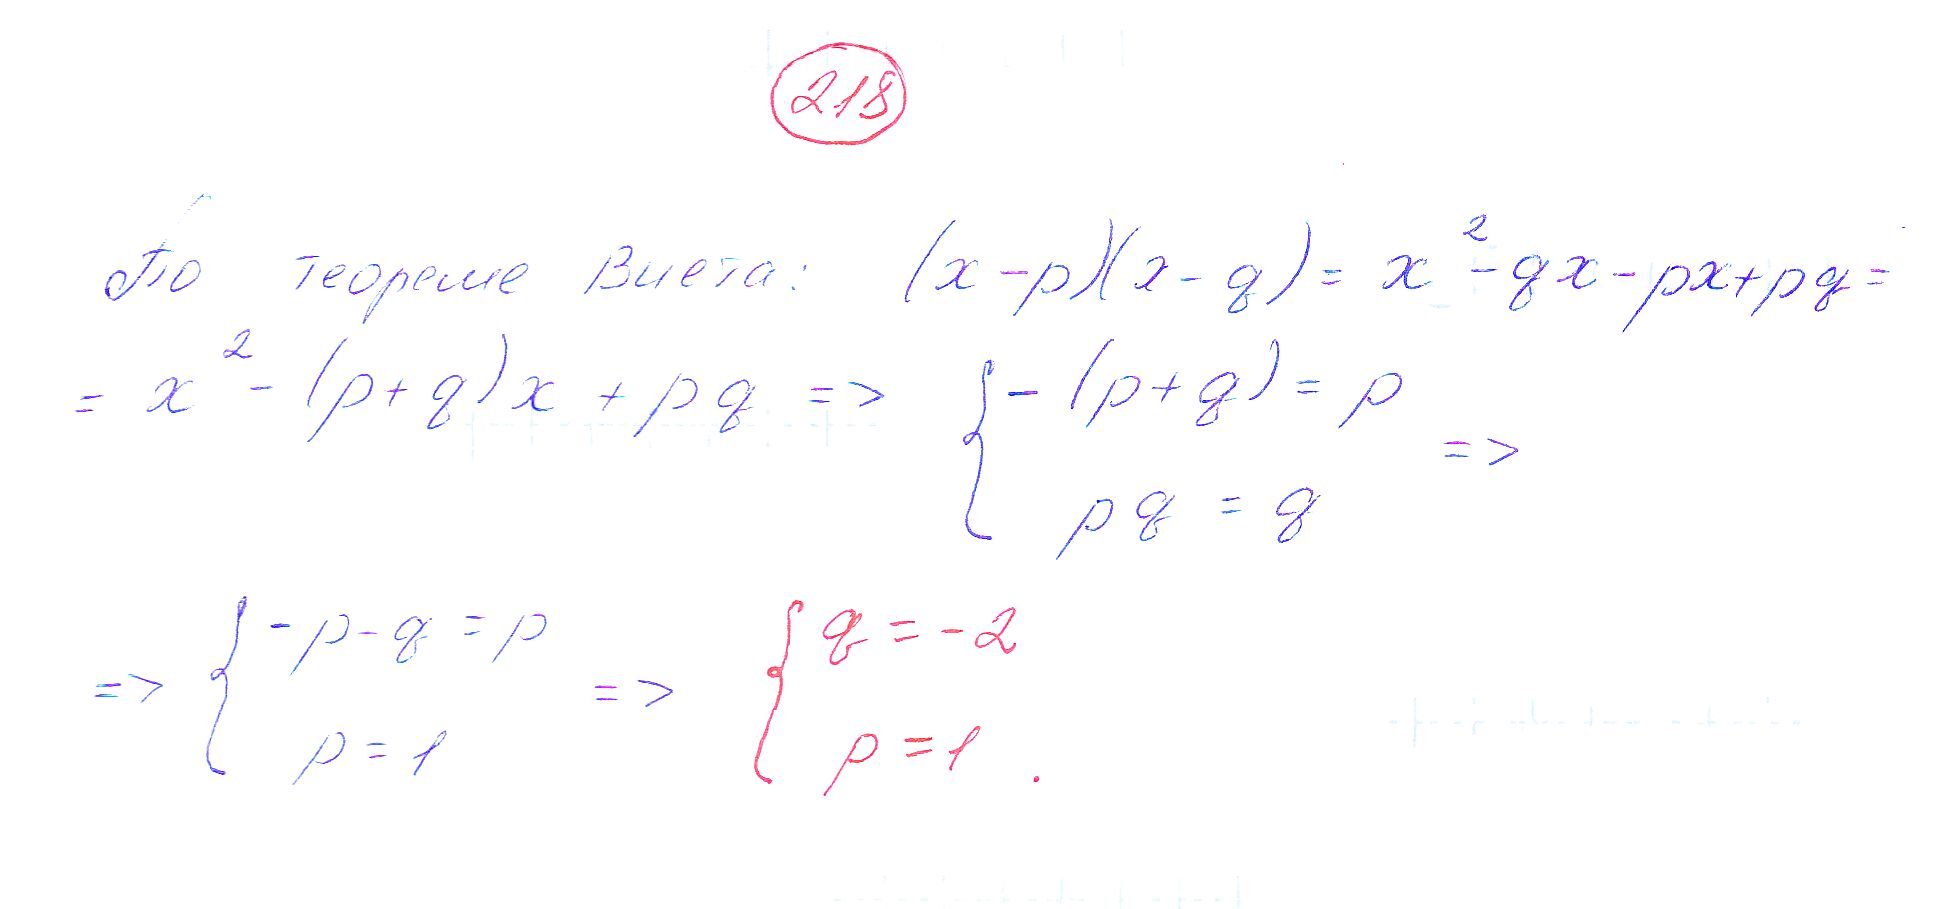 218
По теореме Виета: (x-p)(x-q)= x²-qx-px+pq=
= x²-(p+q)x+pq => { -(p+q)=p
pq=q =>
=> { -p-q=p => { q=-2
p=1 p=1.